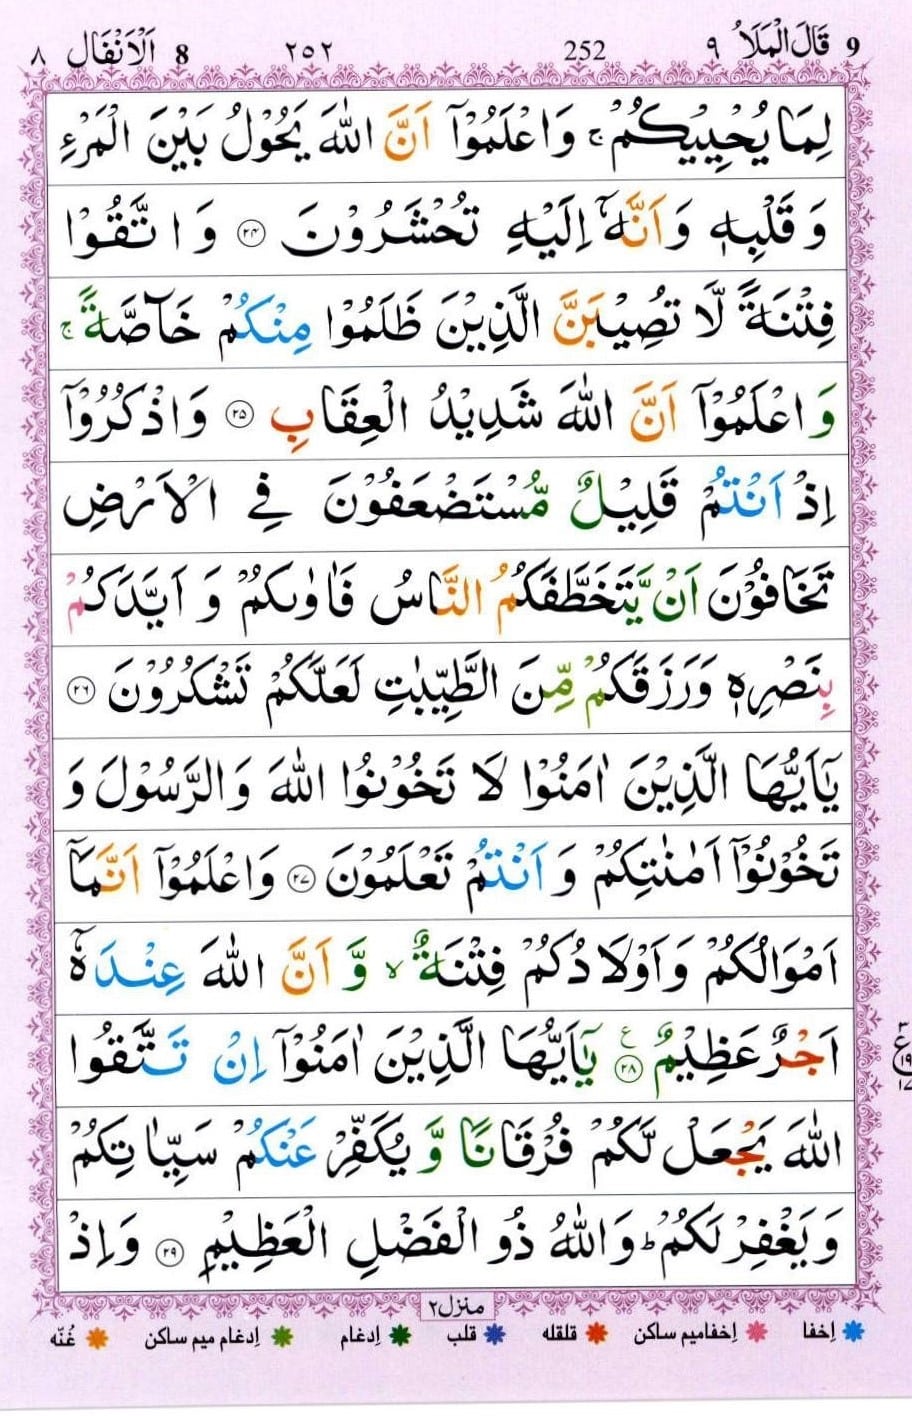 9 قَالَ الْمَلَاُ ۹ 252 ۲۵۲ 8 اَلْاَنْفَال ۸
لِمَا يُحْيِيْكُمْ ۚ وَاعْلَمُوْۤا اَنَّ اللّٰهَ يَحُوْلُ بَيْنَ الْمَرْءِ
وَ قَلْبِهٖ وَ اَنَّهٗۤ اِلَيْهِ تُحْشَرُوْنَ ۲۴ وَ اتَّقُوْا
فِتْنَةً لَّا تُصِيْبَنَّ الَّذِيْنَ ظَلَمُوْا مِنْكُمْ خَآصَّةً ۚ
وَ اعْلَمُوْۤا اَنَّ اللّٰهَ شَدِيْدُ الْعِقَابِ ۲۵ وَاذْكُرُوْۤا
اِذْ اَنْتُمْ قَلِيْلٌ مُّسْتَضْعَفُوْنَ فِي الْاَرْضِ
تَخَافُوْنَ اَنْ يَّتَخَطَّفَكُمُ النَّاسُ فَاٰوٰىكُمْ وَ اَيَّدَكُمْ
بِنَصْرِهٖ وَرَزَقَكُمْ مِّنَ الطَّيِّبٰتِ لَعَلَّكُمْ تَشْكُرُوْنَ ۲۶
يٰۤاَيُّهَا الَّذِيْنَ اٰمَنُوْا لَا تَخُوْنُوا اللّٰهَ وَالرَّسُوْلَ وَ
تَخُوْنُوْۤا اَمٰنٰتِكُمْ وَ اَنْتُمْ تَعْلَمُوْنَ ۲۷ وَاعْلَمُوْۤا اَنَّمَاۤ
اَمْوَالُكُمْ وَ اَوْلَادُكُمْ فِتْنَةٌ ۙ وَّ اَنَّ اللّٰهَ عِنْدَهٗۤ
اَجْرٌ عَظِيْمٌ ۲۸ ع يٰۤاَيُّهَا الَّذِيْنَ اٰمَنُوْۤا اِنْ تَتَّقُوا
۳ ع ۹ ۱۷
اللّٰهَ يَجْعَلْ لَّكُمْ فُرْقَانًا وَّ يُكَفِّرْ عَنْكُمْ سَيِّاٰتِكُمْ
وَ يَغْفِرْ لَكُمْ ؕ وَاللّٰهُ ذُو الْفَضْلِ الْعَظِيْمِ ۲۹ وَاِذْ
منزل۲
اِخفا اِخفامیم ساکن قلقله قلب اِدغام اِدغام میم ساکن غُنّه